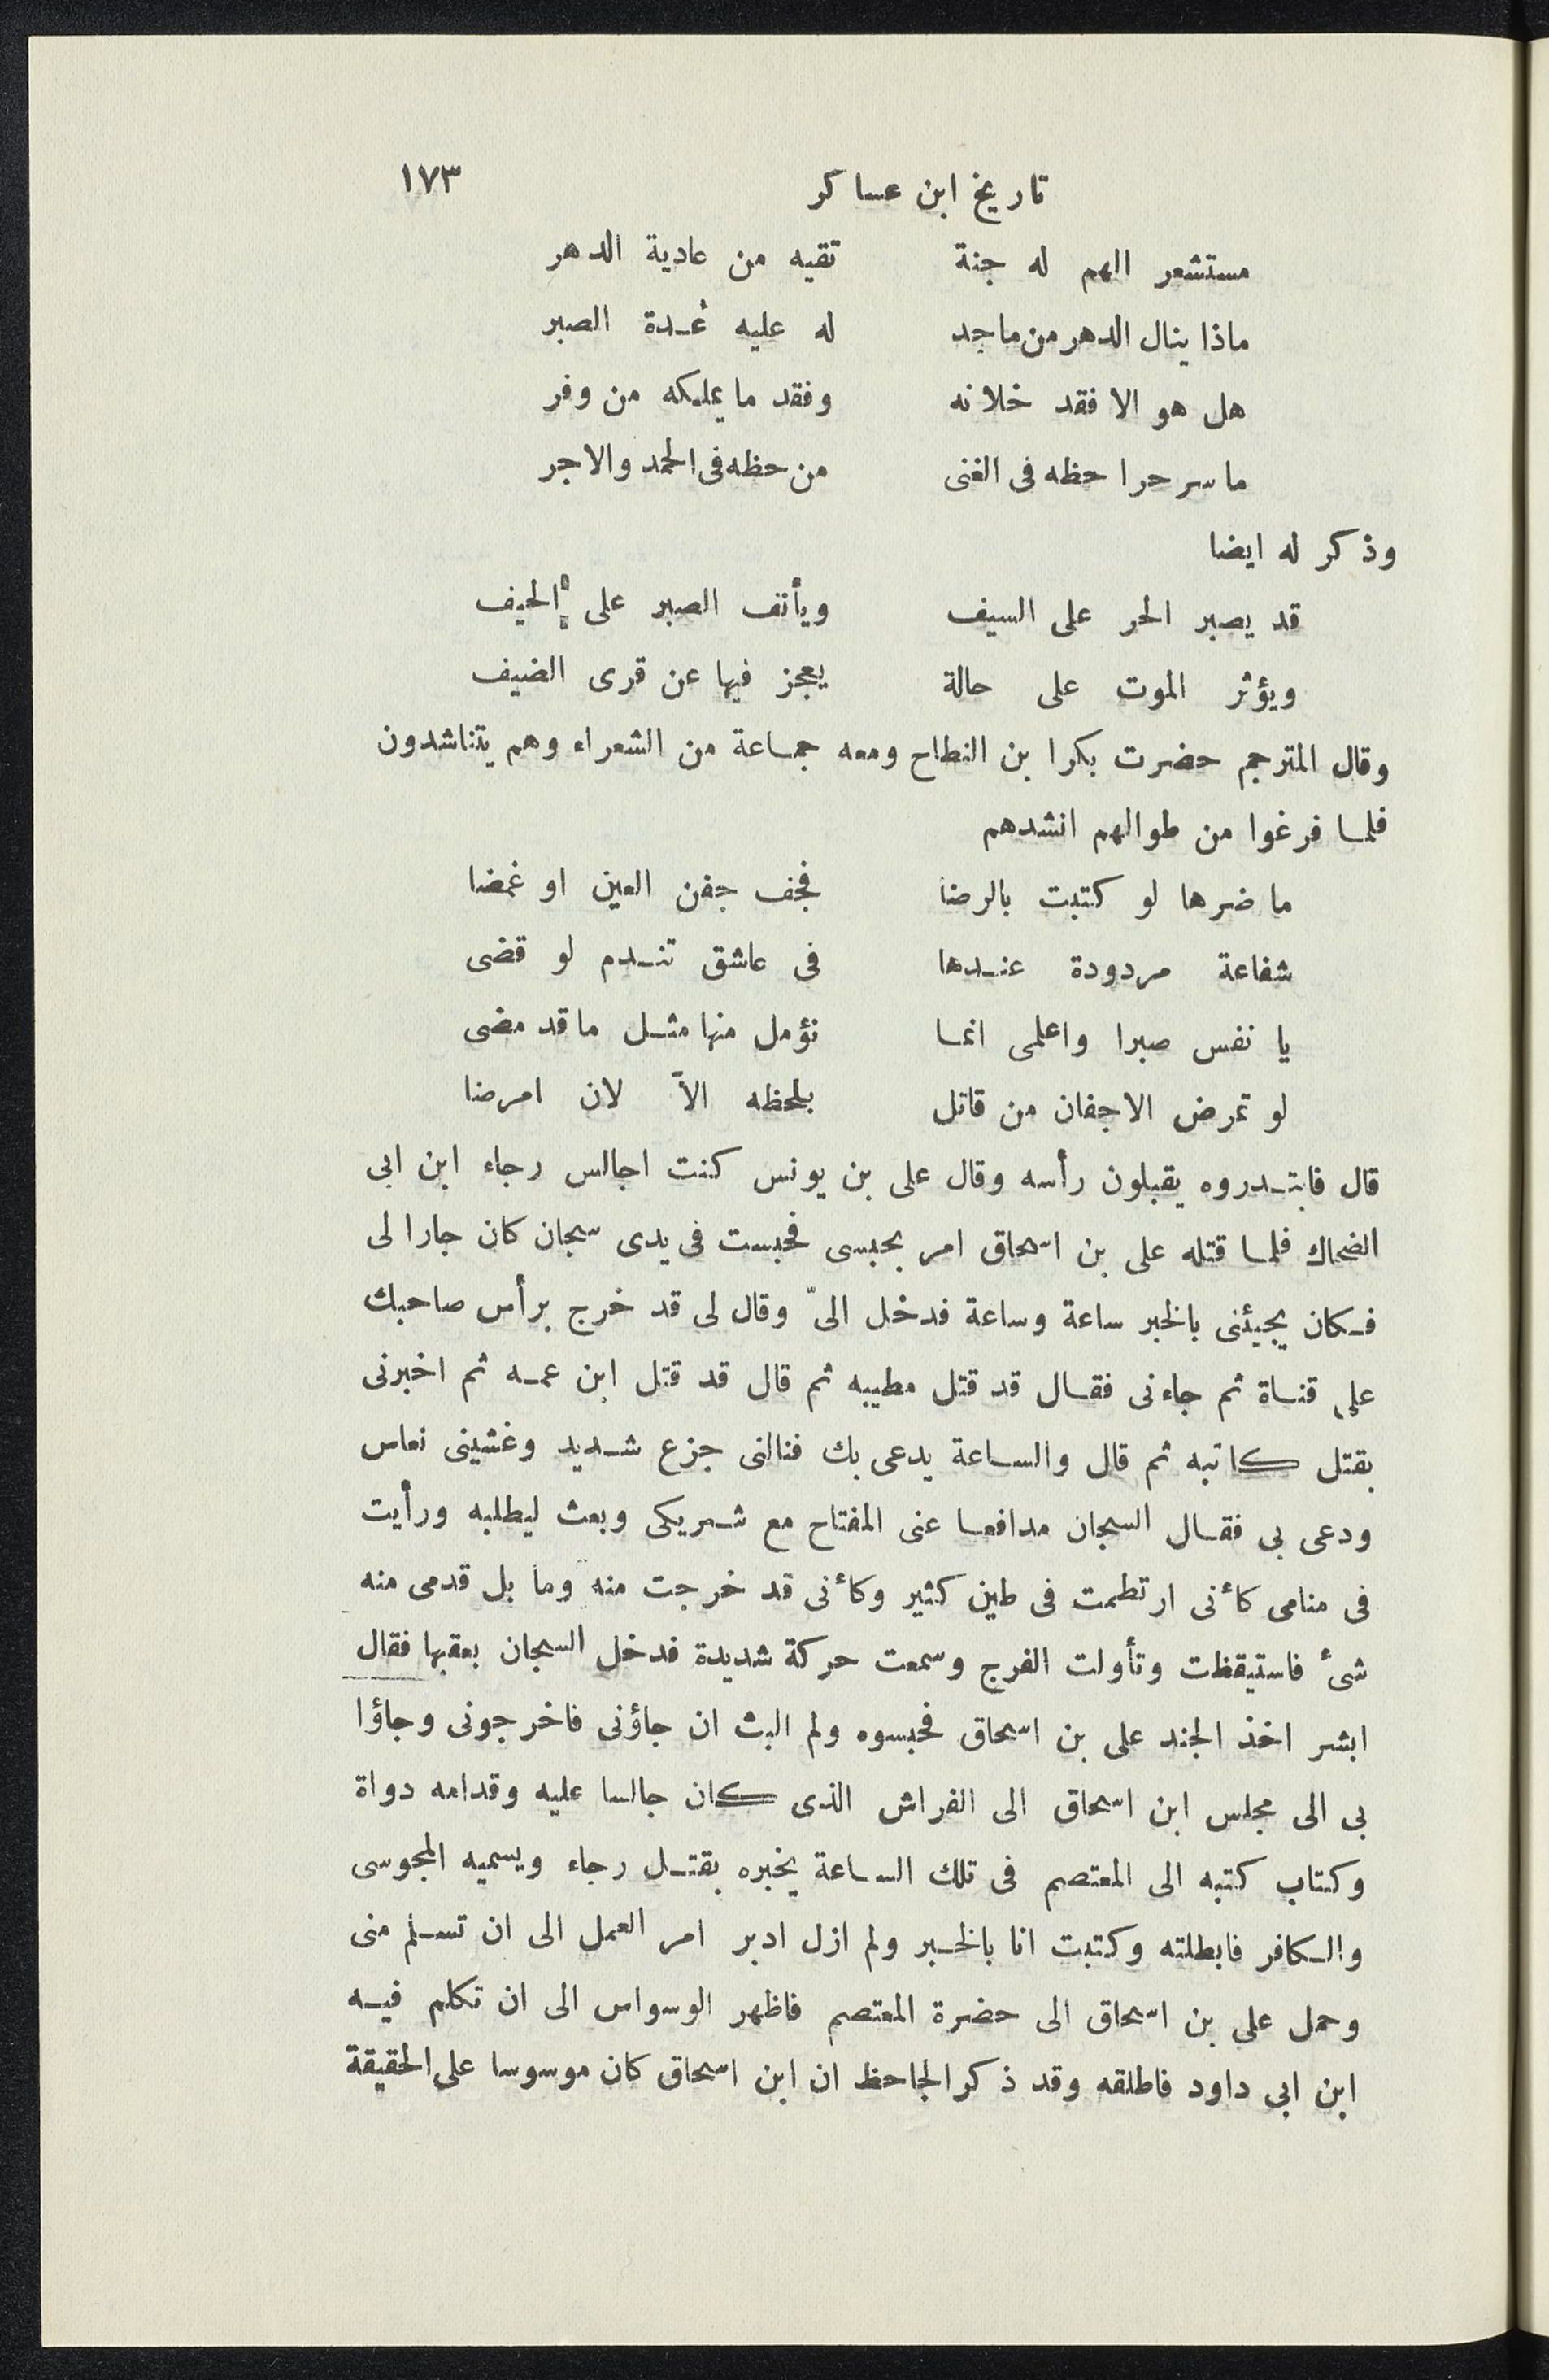 تاريخ ابن عساكر ١٧٣
مستشعر الهم له جنة تقيه من عادية الدهر
ماذا ينال الدهر من ماجد له عليه عُدة الصبر
هل هو الا فقد خلانه وفقد ما يملكه من وفر
ما سر حرا حظه فى الغنى من حظه فى الحمد والاجر
وذكر له ايضا
قد يصبر الحر على السيف ويأنف الصبر على الحيف
ويؤثر الموت على حالة يعجز فيها عن قرى الضيف
وقال المترجم حضرت بكرا بن النطاح ومعه جماعة من الشعراء وهم يتناشدون
فلما فرغوا من طوالهم انشدهم
ما ضرها لو كتبت بالرضا فجف جفن العين او غمضا
شفاعة مردودة عندها فى عاشق تندم لو قضى
يا نفس صبرا واعلمى انما نؤمل منها مثل ما قد مضى
لو تمرض الاجفان من قاتل بلحظه الاّ لان امرضا
قال فابتدروه يقبلون رأسه وقال على بن يونس كنت اجالس رجاء ابن ابى
الضحاك فلما قتله على بن اسحاق امر بحبسى فحبست فى يدى سجان كان جارا لى
فكان يجيئنى بالخبر ساعة وساعة فدخل الىّ وقال لى قد خرج برأس صاحبك
على قناة ثم جاءنى فقال قد قتل مطيبه ثم قال قد قتل ابن عمه ثم اخبرنى
بقتل كاتبه ثم قال والساعة يدعى بك فنالنى جزع شديد وغشينى نعاس
ودعى بى فقال السجان مدافعا عنى المفتاح مع شريكى وبعث ليطلبه ورأيت
فى منامى كأنى ارتطمت فى طين كثير وكأنى قد خرجت منه وما بل قدمى منه
شئ فاستيقظت وتأولت الفرج وسمعت حركة شديدة فدخل السجان بعقبها فقال
ابشر اخذ الجند على بن اسحاق فحبسوه ولم البث ان جاؤنى فاخرجونى وجاؤا
بى الى مجلس ابن اسحاق الى الفراش الذى كان جالسا عليه وقدامه دواة
وكتاب كتبه الى المعتصم فى تلك الساعة يخبره بقتل رجاء ويسميه المجوسى
والكافر فابطلته وكتبت انا بالخبر ولم ازل ادبر امر العمل الى ان تسلم منى
وحمل على بن اسحاق الى حضرة المعتصم فاظهر الوسواس الى ان تكلم فيه
ابن ابى داود فاطلقه وقد ذكر الجاحظ ان ابن اسحاق كان موسوسا على الحقيقة